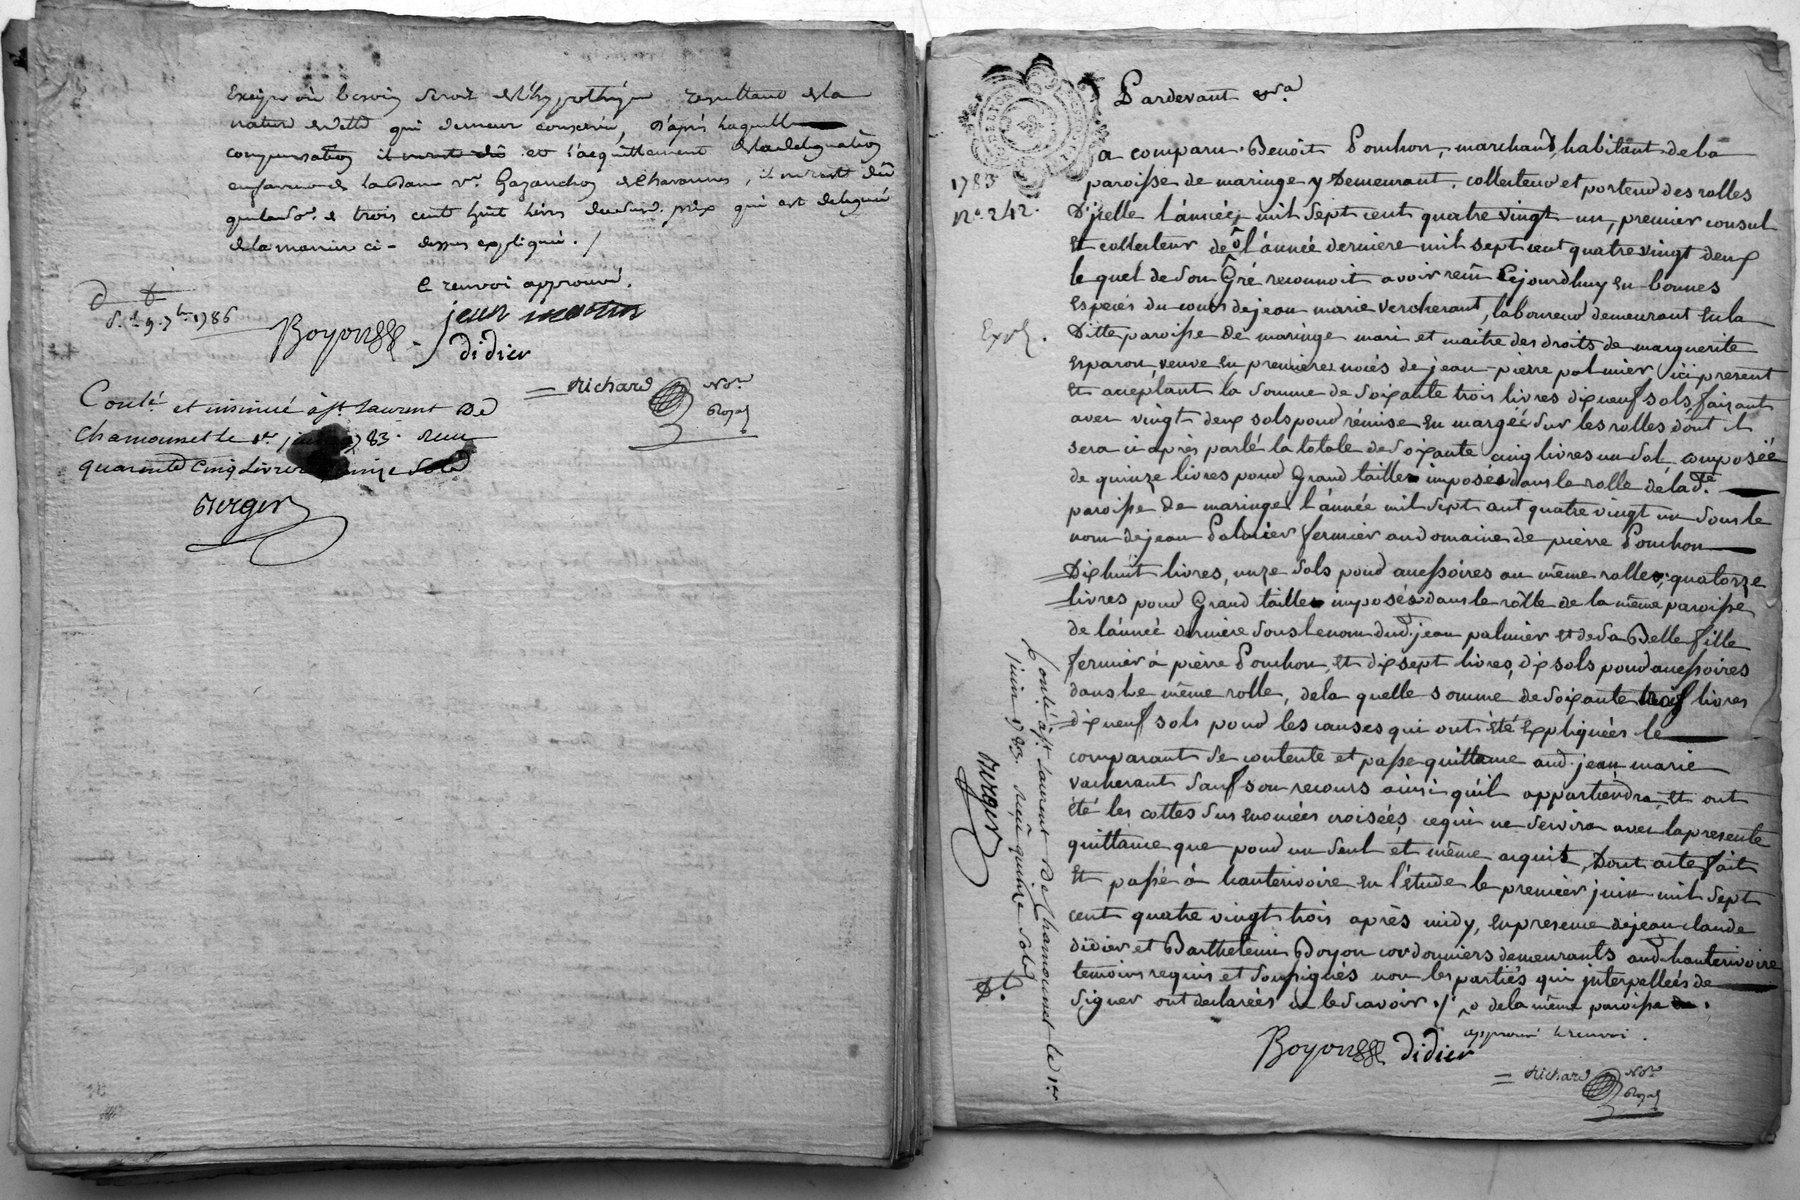 Exeijer où besoin seroit de l'hypothèque resultant de la
nature de dette qui demeure conservée, d'après laquelle
compensation il et l'acquittement de la delegation
en faveur de la dame v.e Gazanchon de Chavannes, il
que lad. de trois cent huit livres dud. prix qui est delegué
de la maniere ci-dessus expliquée . /
le renvoi approuvé.
jean martin
d.t 9. 7bre 1786
Boyon
didier
Richard Nore
Royal
Conté et insinué à st Laurent de
Chamousset le 1er 1783. reçu
quarante cinq livres sols
Berger
Pardevant &ra
1783
N.o 242.
a comparu Benoit Ponchon, marchand, habitant de la
paroisse de maringe y demeurant, collecteur et porteur des rolles
D'jcelle l'année mil sept cent quatre vingt un, premier consul
et collecteur de l'année derniere mil sept cent quatre vingt deux
le quel de son Gré reconnoit avoir reçû cejourdhuy en bonnes
especes du cours de jean marie vercherant, laboureur demeurant en la
Expé.
Ditte paroisse de maringe mari et maitre des droits de marguerite
Esparon, veuve en premieres noces de jean-pierre palmier ici present
et acceptant la somme de soixante trois livres dix neuf sols, faizant
avec vingt deux sols pour remise en margée sur les rolles dont il
sera ci après parlé la totale de soixante cinq livres un sol, composée
de quinze livres pour Grand taille imposées dans le rolle de la d.te
paroisse de maringe l'année mil sept cent quatre vingt un sous le
nom de jean Palmier fermier au domaine de pierre Ponchon
Dix huit livres, unze sols pour accessoires au même rolle, quatorze
livres pour Grand taille imposés dans le rôlle de la même paroisse
de l'année derniere sous le nom dud. jean palmier et de sa Belle fille
fermier à pierre Ponchon, et dix sept livres, dix sols pour accessoires
dans le même rolle, de la quelle somme de soixante trois livres
dix neuf sols pour les causes qui ont été expliquées le
comparant se contente et passe quittance aud. jean marie
vacherant sauf son recours ainsi qu'il appartiendra, et ont
été les cottes sus enoncées croisées, ce qui ne servira avec la presente
quittance que pour un seul et même acquit, Dont acte fait
et passé à hauterivoire en l'étude le premier juin mil sept
cent quatre vingt trois après midy, en presence de jean claude
didier et Barthelemi Boyon cordonniers demeurants aud. hauterivoire
temoins requis et soussignés non les parties qui interpellées de
signer ont declarées ne le sçavoir ./. o de la même paroisse
approuvé le renvoi.
Boyon didier
Richard Nore
Royal
Conté à st Laurent de Chamousset le 1er
juin 1783. reçû quinze sols
Berger